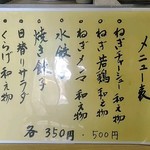 メニュー表
ねぎチャーシュー和え物
ねぎ若鶏和え物
ねぎメンマ和え物
水餃子
焼き餃子
日替りサラダ
くらげ和え物
各350円・500円